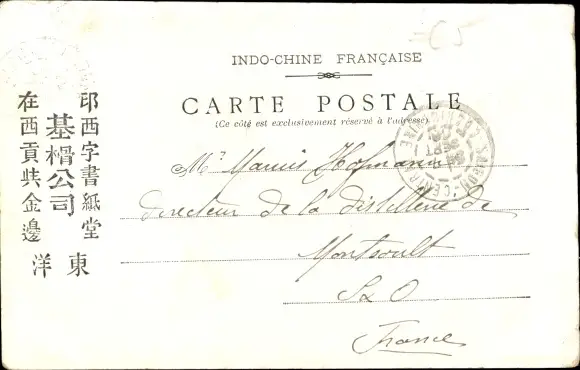 C5
INDO-CHINE FRANÇAISE
CARTE POSTALE
(Ce côté est exclusivement réservé à l'adresse)
印西字書紙堂
基楈公司
在西貢柴金邊
東洋
Mr Hofmann
directeur de la distillerie de
Montsoult
S & O
France